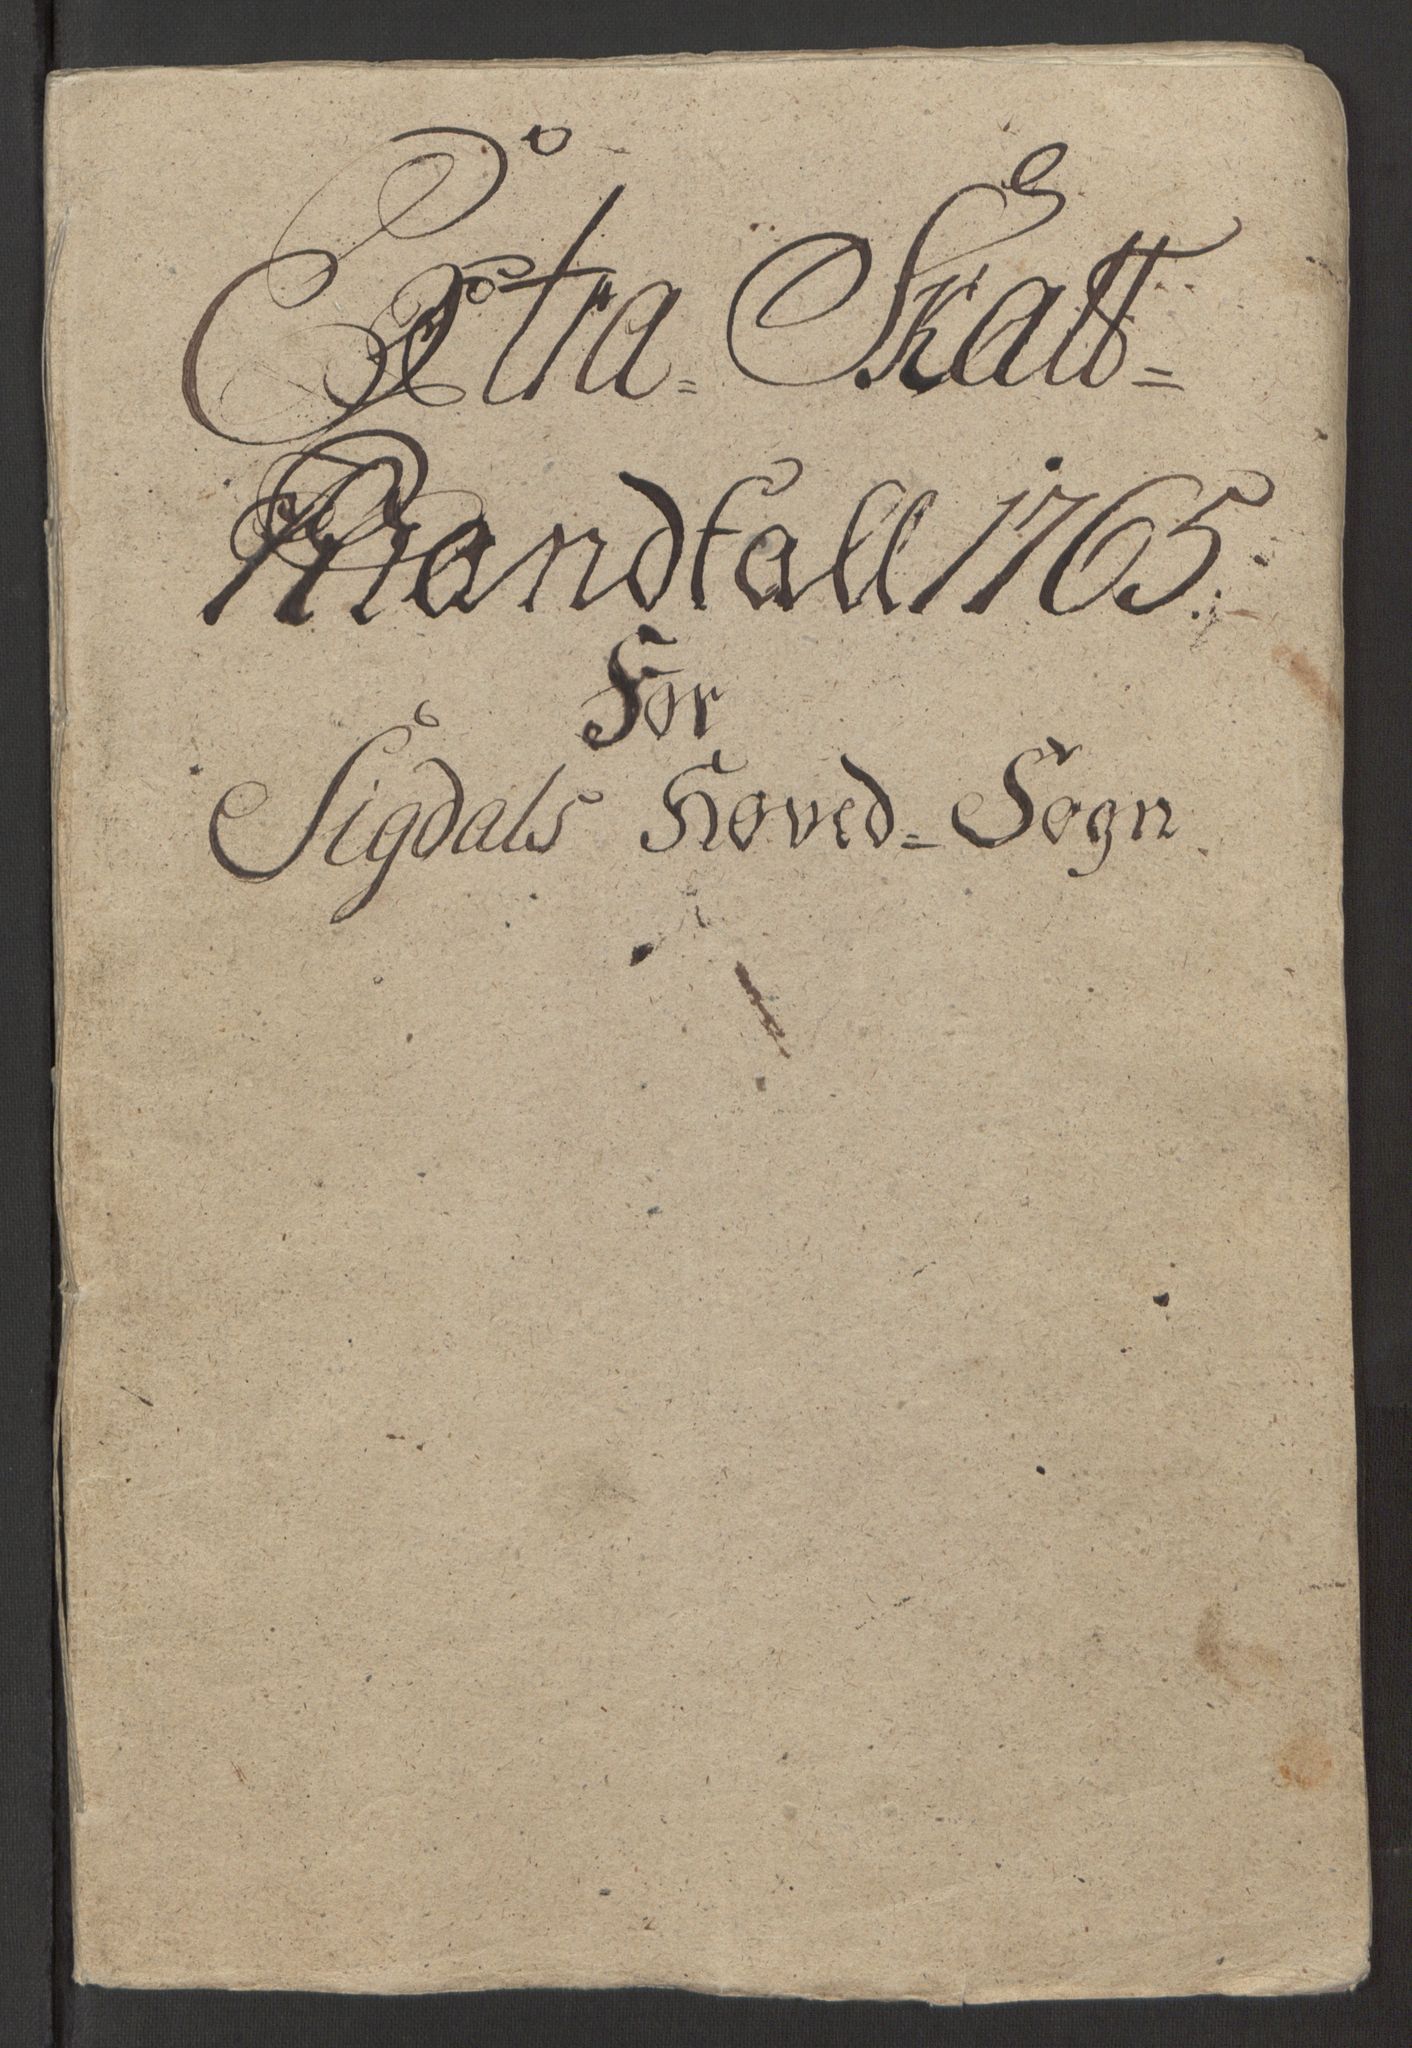 Extra = Skatt =
Mandtall 1765.
For
Sigdals Hoved = Sogn